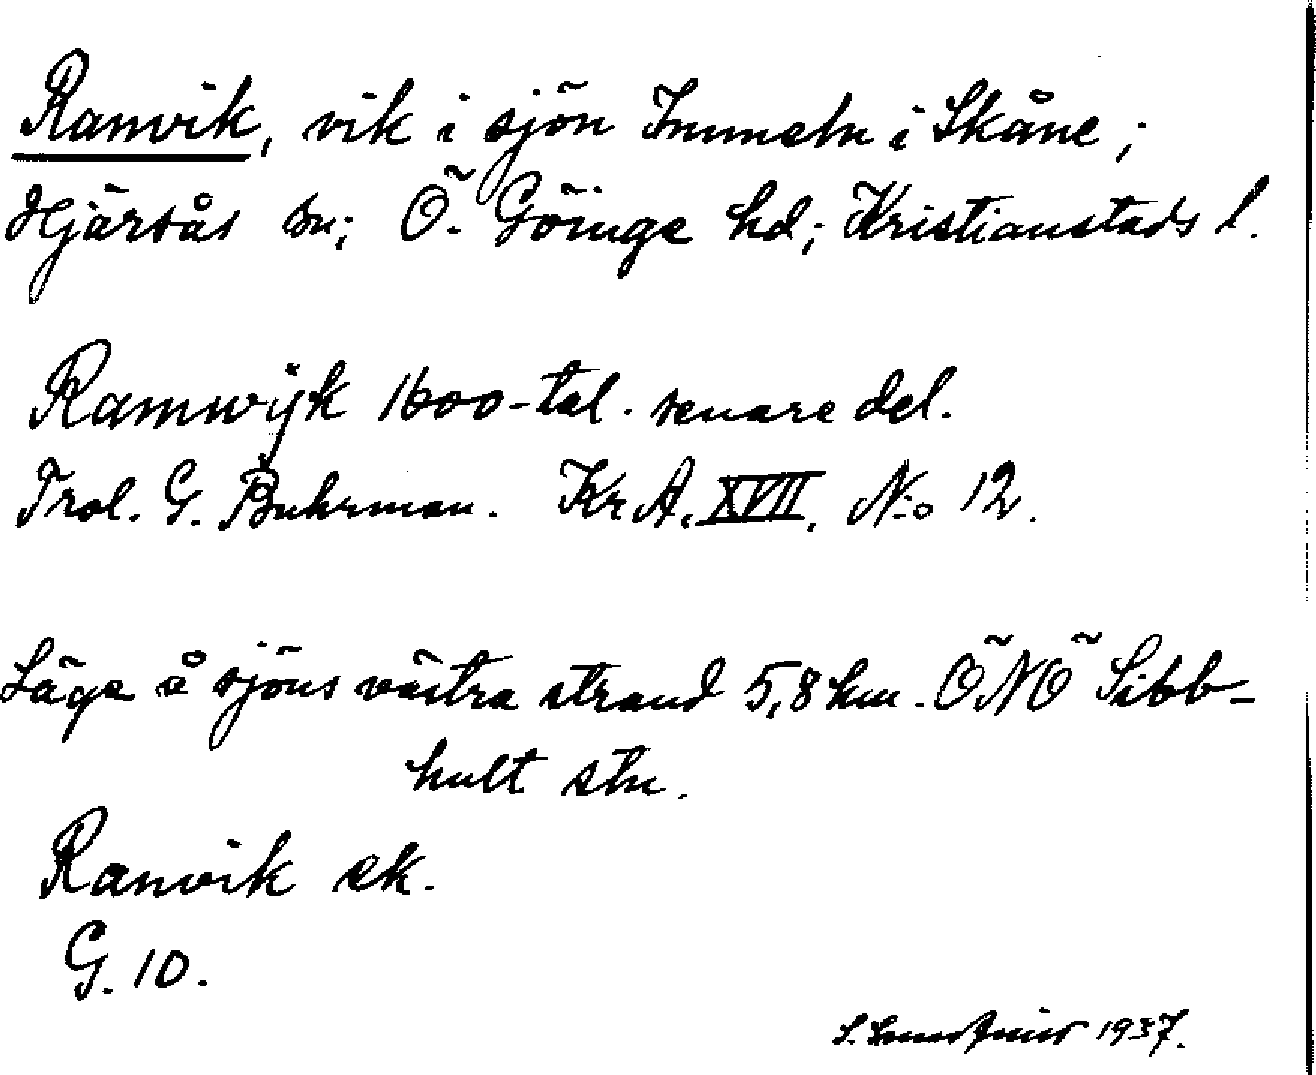 Ranvik, vik i sjön Immeln i Skåne;
Hjärsås sn; Ö. Göinge hd; Kristianstads l.
Ramwijk 1600-tal. senare del.
Trol. G. Buhrman. Kr A. XVII. No 12.
Läge å sjöns västra strand 5,8 km. ÖNÖ Sibb-
hult stn.
Ranvik ek.
G. 10.
S. 1937.